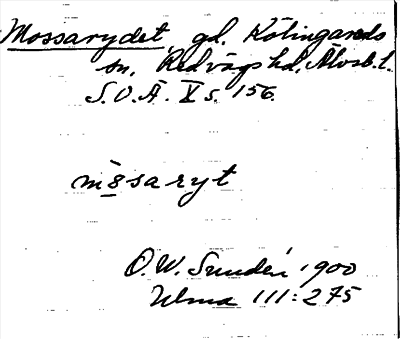 Mossarydet gd. Kölingareds
sn, Redvägs hd, Älvsb. l.
S.O.Ä. X s. 156.
saryt
O.W. Sundén 1900
Ulma 111:275